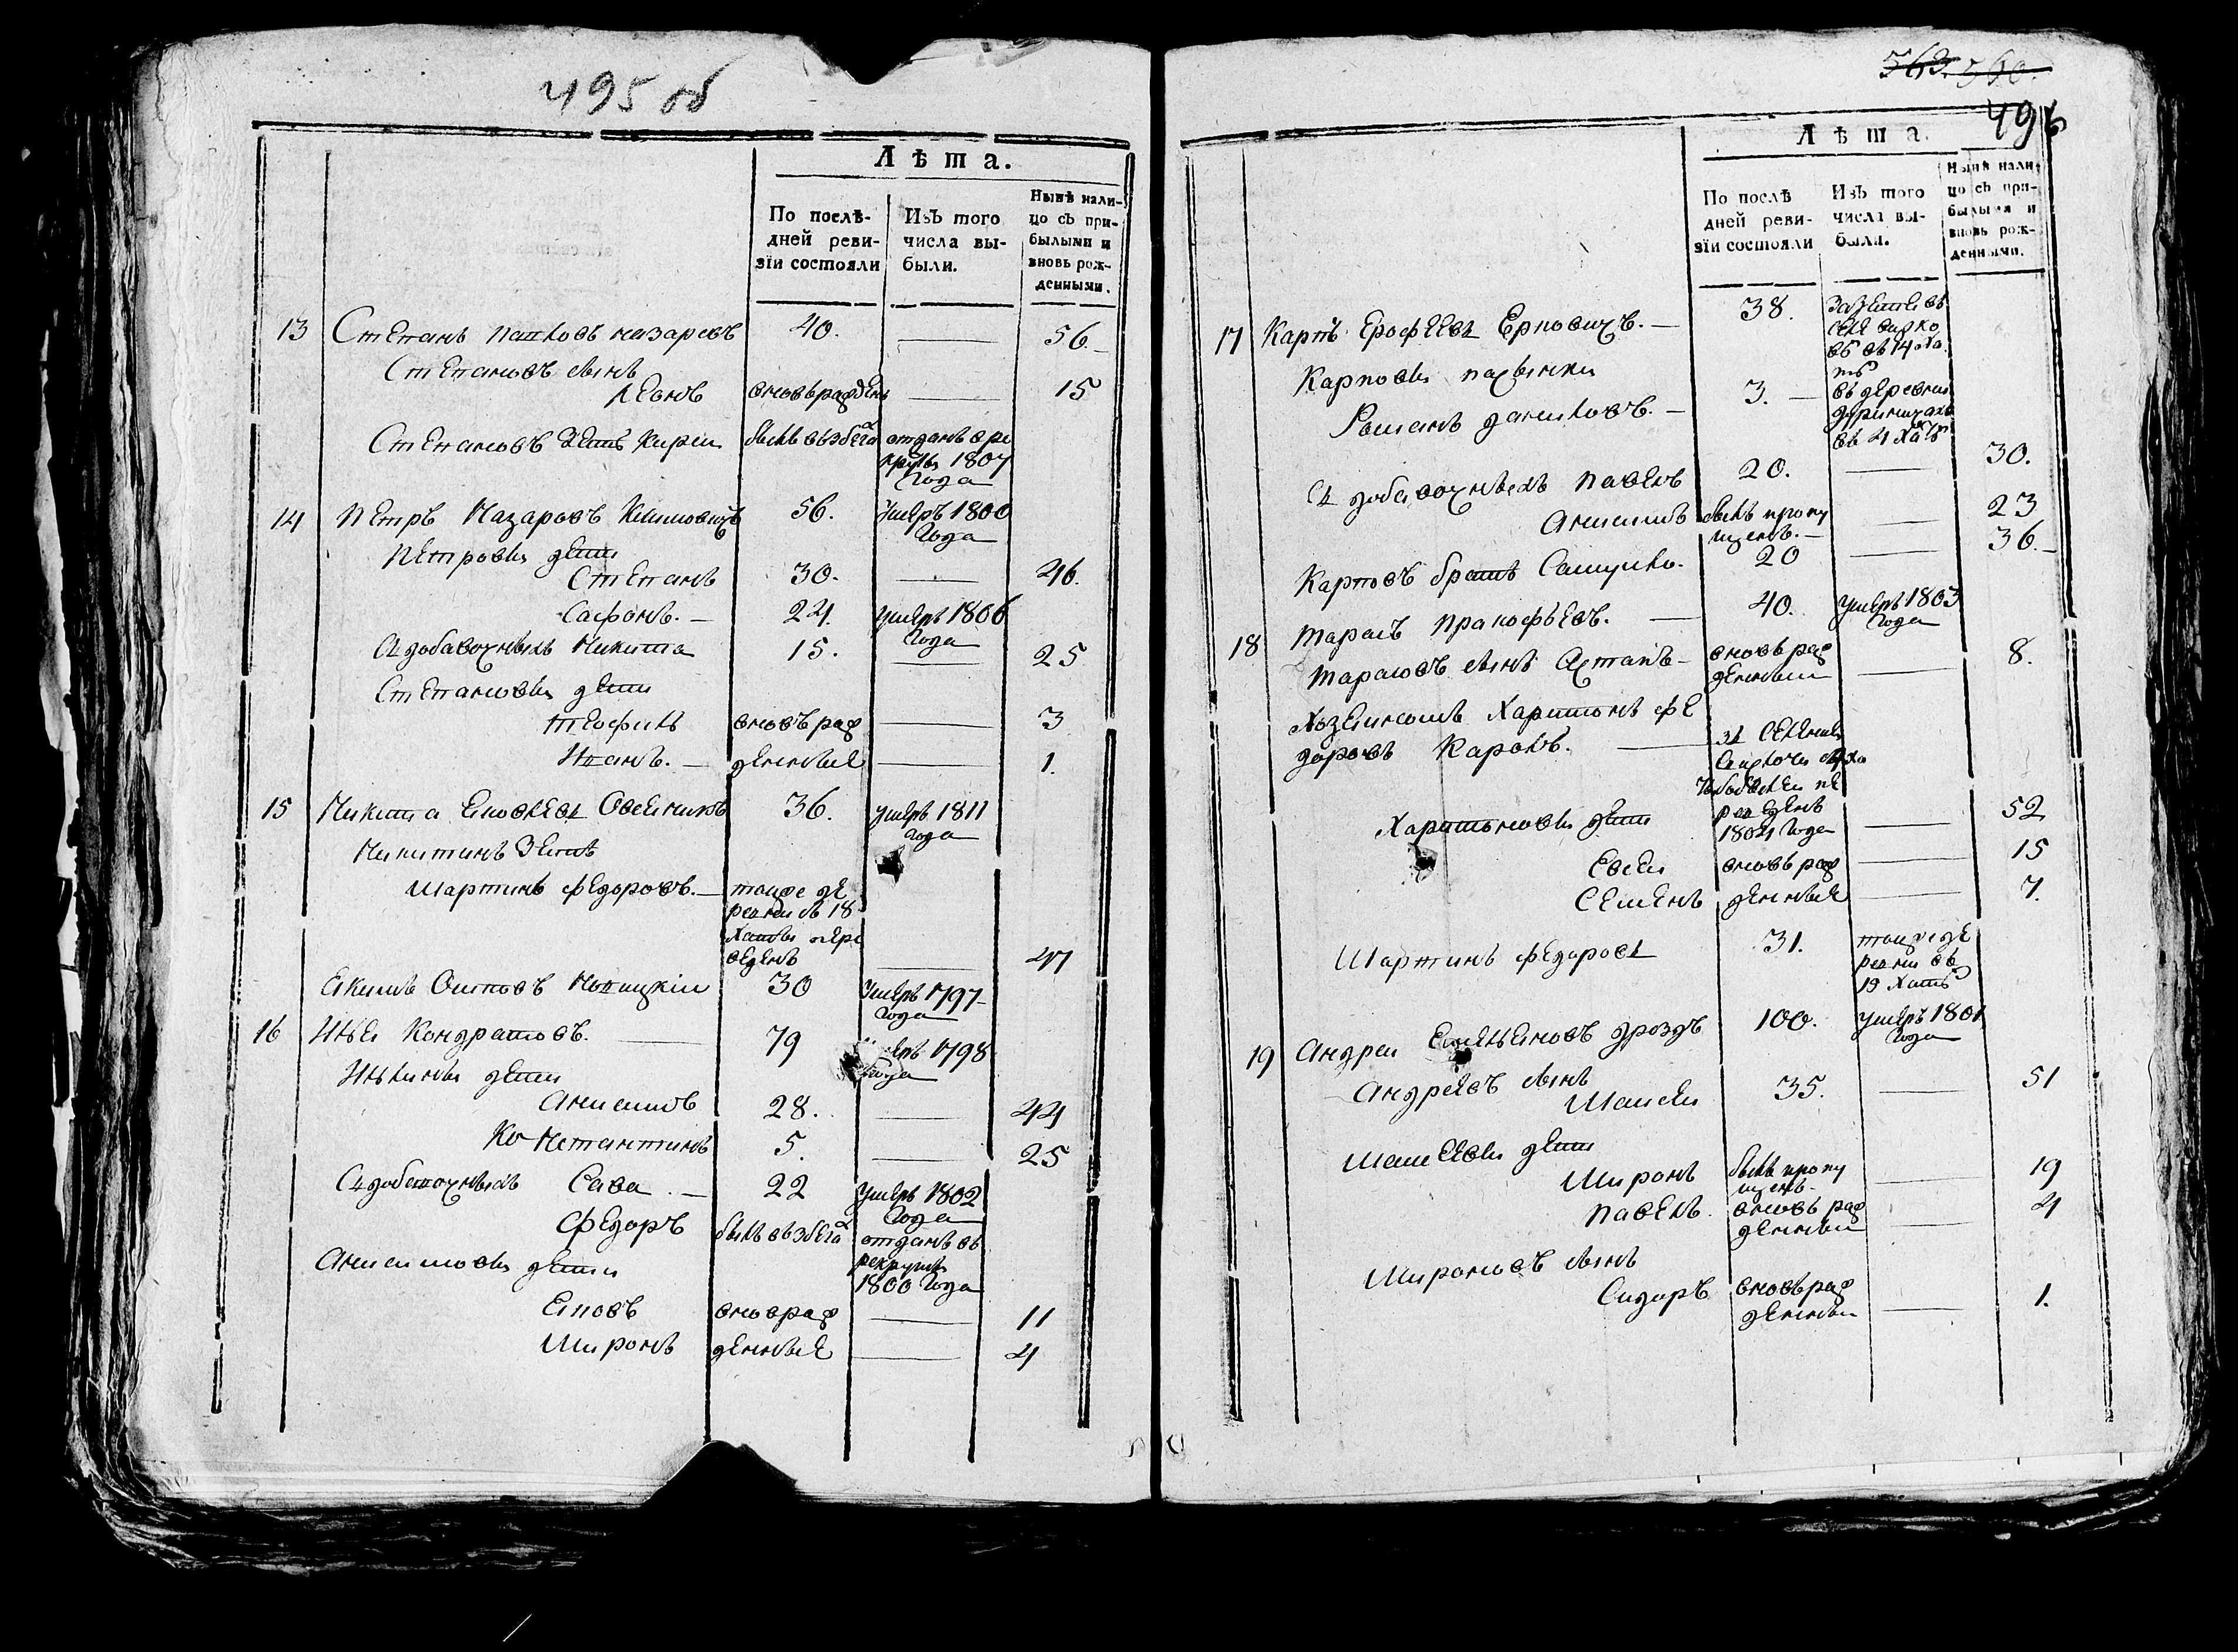 495 об
Лѣта.
По послѣ-
дней реви-
зїи состояли
Изъ того
числа вы-
были.
Нынѣ нали-
цо съ при-
былыми и
вновь рож-
денными.
13 Степанъ Павловъ назаровъ 40. — 56.
Степановъ сынъ
Леонъ вновьражденъ — 15
Степановъ зять Кирѣи былъ въ збега отданъ в ре
круты 1807
Года
14 Петръ Назаровъ Климовичъ 56. умеръ 1800
Года
Петровы дети
Степанъ 30. — 46.
Сафонъ. — 24. умеръ 1806
Года
Из добавочныхъ Никита 15. — 25
Степановы дети
Теофилъ вновъ раж — 3
Иванъ. — денные — 1.
15 Никита Яковлевъ Овсяниковъ 36. умеръ 1811
Года
Никитинъ Зять
Мартинъ Федоровъ. — тоиже де
ревни въ 18
Хаты пере
веденъ — 47
Якимъ Осиповъ 30 умеръ 1797
Года
16 Илья Кондратовъ. — 79 умеръ 1798
Года
Ильины дети
Анисимъ 28. — 44
Константинъ 5. — 25
Из добавочныхъ Сава. — 22 умеръ 1802
Года
Федоръ былъ въ збега отданъ въ
рекруты
1800 Года
Анисимовы дети
Яковъ внов раж — 11
Миронъ денные — 4
563. 560.
496
Лѣта.
По послѣ
дней реви-
зїи состояли
Изъ того
числа вы-
были.
Нынѣ нали-
цо съ при-
былыми и
вновь рож-
денными.
17 Карпъ Ерофеевъ Ерповичъ. — 38.
въ 14 ха
тѣ
Карповы пасынки
Романъ даниловъ. — 3. — въ деревни
въ 4 Хатѣ
Из добавочныхъ Павелъ 20. — 30.
Анисимъ былъ пропу
щенъ. — 23
Карповъ братъ Самуило. 20 — 36.
18 Тарасъ Пракофьевъ. — 40. умеръ 1803
Года
Тарасовъ сынъ Астапъ — вновь раж
денныи — 8.
Хозяиномъ Харитонъ Фе
доровъ Кароль. —
ре веденъ
1804 Года — 52
Харитоновы дети
Евсеи вновь раж — 15
Семенъ денные — 7.
Мартинъ Федоровъ 31. тоиже де
ревни въ
19 Хатѣ
19 Андреи Емельяновъ дроздъ 100. умеръ 1801
Года
Андреевъ сынъ
Матвеи 35. — 51
Матвеевы дети
Миронъ былъ пропу
щенъ — 19
Павелъ. вновь раж
денныи — 4
Мироновъ сынъ
Сидоръ вновь раж
денныи — 1.